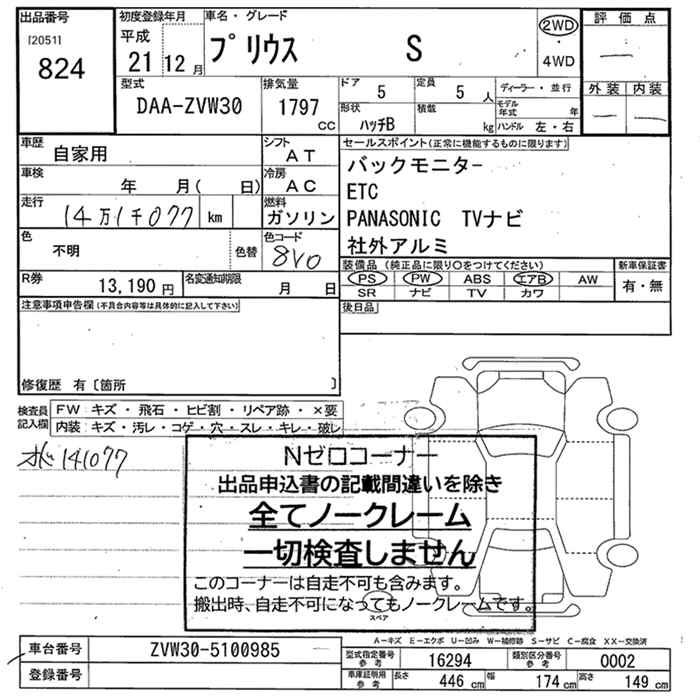 出品番号 初度登録年月 車名・グレード 2WD 評価点
[2051] 平成 プリウス S ・ 一
824 21 12月 4WD
型式 排気量 ドア 5 定員 5人 ディーラー・並行 外装 内装
DAA-ZVW30 1797 CC 形状 ハッチB 積載 kg モデル年式 年 一 一
ハンドル 左・右
車歴 自家用 シフト AT セールスポイント(正常に機能するものに限ります)
車検 年 月( 日) 冷房 AC バックモニター
走行 14万1千077 km 燃料 ガソリン ETC
PANASONIC TVナビ
色 不明 色替 色コード 8V0 社外アルミ
R券 13,190円 名変通知期限 月 日 装備品(純正品に限り○をつけてください) 新車保証書
PS PW ABS エアB AW 有・無
SR ナビ TV カワ
注意事項申告欄(不具合内容等は具体的に記入して下さい) 後日品
修復歴 有〔箇所 〕
検査員記入欄 FW:キズ・飛石・ヒビ割・リペア跡・×要
内装:キズ・汚レ・コゲ・穴・スレ・キレ・破レ
141077
Nゼロコーナー
出品申込書の記載間違いを除き
全てノークレーム
一切検査しません
このコーナーは自走不可も含みます。
搬出時、自走不可になってもノークレームです。
スペア
A-キズ E-エクボ U-凹み W-補修跡 S-サビ C-腐食 XX-交換済
車台番号 ZVW30-5100985 型式指定番号 参考 16294 類別区分番号 参考 0002
登録番号 車庫証明用 参考 長さ 446 cm 幅 174 cm 高さ 149 cm